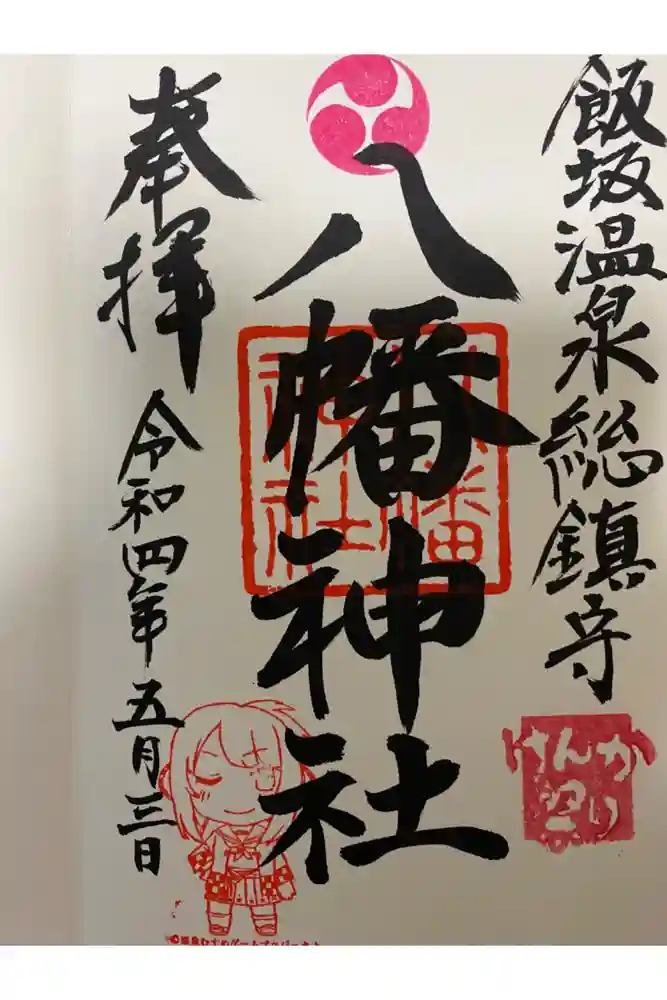 飯坂温泉総鎮守
八幡神社
奉拝
令和四年五月三日
八幡
神社
けんか
祭り